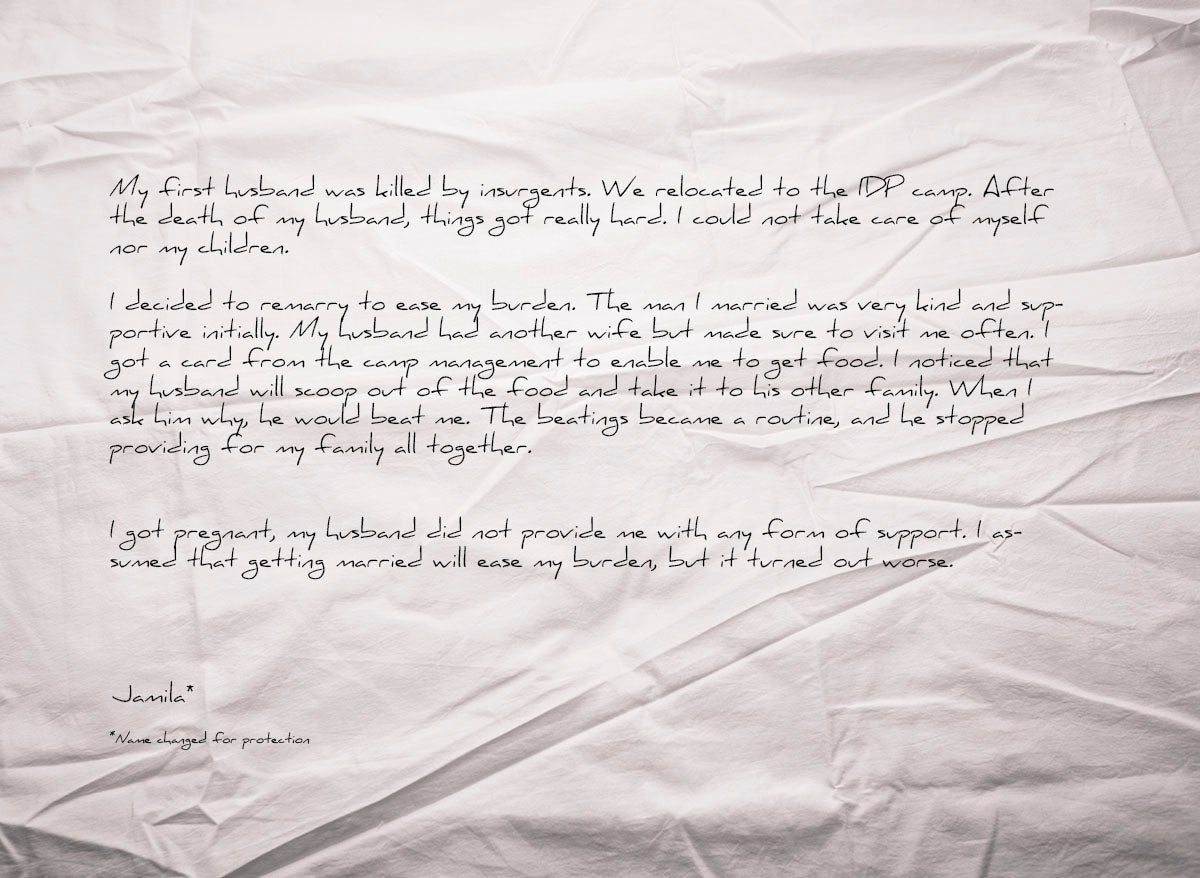 My first husband was killed by insurgents. We relocated to the IDP camp. After
the death of my husband, things got really hard. I could not take care of myself
nor my children.
I decided to remarry to ease my burden. The man I married was very kind and sup-
portive initially. My husband had another wife but made sure to visit me often. I
got a card from the camp management to enable me to get food. I noticed that
my husband will scoop out of the food and take it to his other family. When I
ask him why, he would beat me. The beatings became a routine, and he stopped
providing for my family all together.
I got pregnant, my husband did not provide me with any form of support. I as-
sumed that getting married will ease my burden, but it turned out worse.
Jamila*
*Name changed for protection